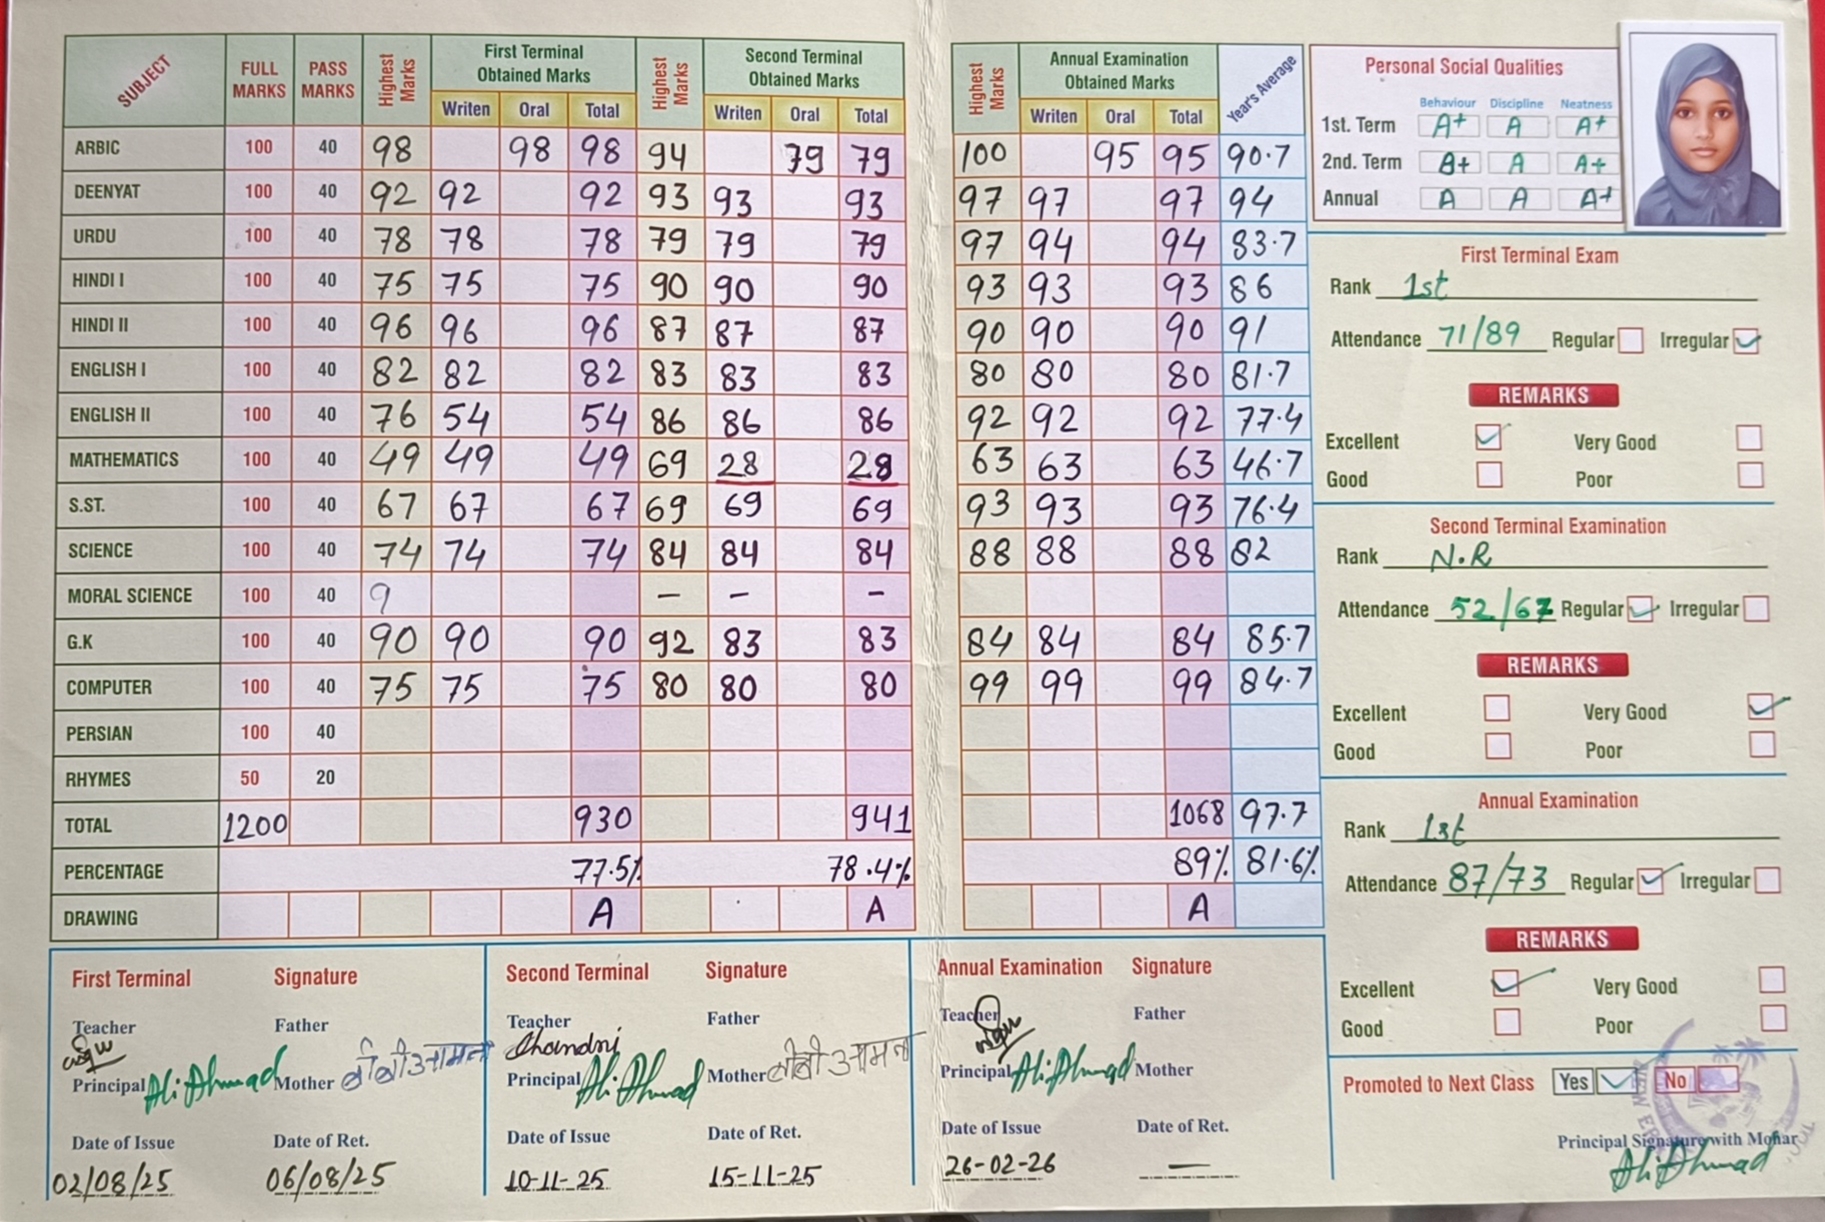 SUBJECT FULL MARKS PASS MARKS Highest Marks First Terminal Obtained Marks Highest Marks Second Terminal Obtained Marks Highest Marks Annual Examination Obtained Marks Year's Average
Writen Oral Total Writen Oral Total Writen Oral Total
ARBIC 100 40 98 98 98 94 79 79 100 95 95 90.7
DEENYAT 100 40 92 92 92 93 93 93 97 97 97 94
URDU 100 40 78 78 78 79 79 79 97 94 94 83.7
HINDI I 100 40 75 75 75 90 90 90 93 93 93 86
HINDI II 100 40 96 96 96 87 87 87 90 90 90 91
ENGLISH I 100 40 82 82 82 83 83 83 80 80 80 81.7
ENGLISH II 100 40 76 54 54 86 86 86 92 92 92 77.4
MATHEMATICS 100 40 49 49 49 69 28 28 63 63 63 46.7
S.ST. 100 40 67 67 67 69 69 69 93 93 93 76.4
SCIENCE 100 40 74 74 74 84 84 84 88 88 88 82
MORAL SCIENCE 100 40 9 – – –
G.K 100 40 90 90 90 92 83 83 84 84 84 85.7
COMPUTER 100 40 75 75 75 80 80 80 99 99 99 84.7
PERSIAN 100 40
RHYMES 50 20
TOTAL 1200 930 941 1068 97.7
PERCENTAGE 77.5% 78.4% 89% 81.6%
DRAWING A A A
Personal Social Qualities
Behaviour Discipline Neatness
1st. Term A+ A A+
2nd. Term A+ A A+
Annual A A A+
First Terminal Exam
Rank 1st
Attendance 71/89 Regular Irregular
REMARKS
Excellent Very Good
Good Poor
Second Terminal Examination
Rank N.R
Attendance 52/67 Regular Irregular
REMARKS
Excellent Very Good
Good Poor
Annual Examination
Rank 1st
Attendance 87/73 Regular Irregular
REMARKS
Excellent Very Good
Good Poor
Promoted to Next Class Yes No
Principal Signature with Mohar
Ali Ahmad
First Terminal Signature
Teacher Father
Principal Ali Ahmad Mother बीबी आमना
Date of Issue Date of Ret.
02/08/25 06/08/25
Second Terminal Signature
Teacher Father
Chandni
Principal Ali Ahmad Mother बीबी आमना
Date of Issue Date of Ret.
10-11-25 15-11-25
Annual Examination Signature
Teacher Father
Principal Ali Ahmad Mother
Date of Issue Date of Ret.
26-02-26 —